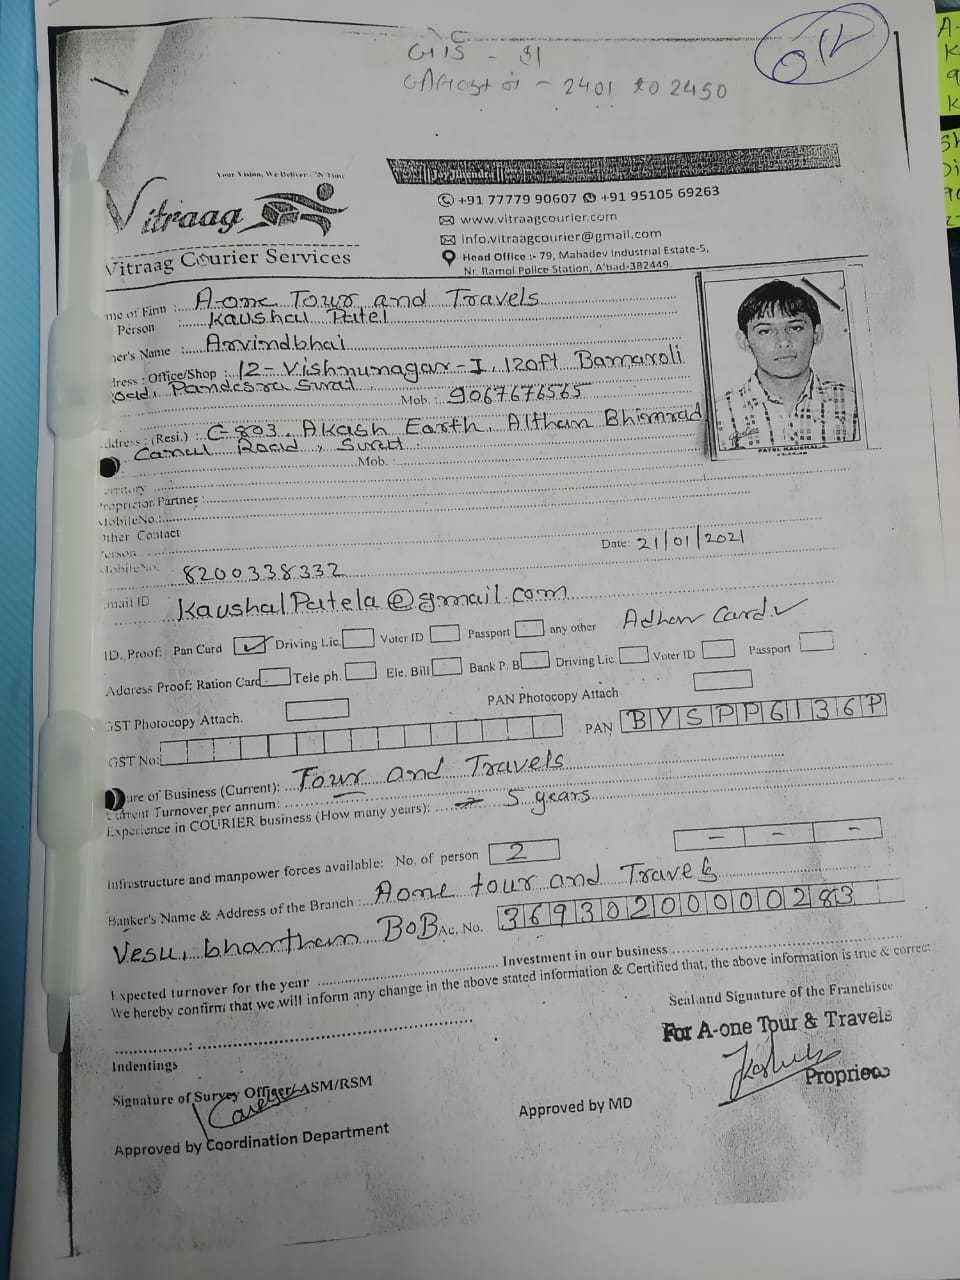 GIS - 81
- 2401 to 2450
Your Vision, We Deliver ON Time
Vitraag
Vitraag Courier Services
||JayJinendra||
+91 77779 90607 +91 95105 69263
www.vitraagcourier.com
info.vitraagcourier@gmail.com
Head Office :- 79, Mahadev Industrial Estate-5,
Nr. Ramol Police Station, A'bad-382449.
me of Firm : A-one Tour and Travels
Person : Kaushal Patel
her's Name : Arvindbhai
dress : Office/Shop : 12- Vishnunagar-I, 120ft Bamaroli
oad, Pandesra Surat Mob. : 9067676565
ddress : (Resi.) : C-803, Akash Earth, Althan Bhimrad
Canal Road, Surat
Mob. :
erritory
Proprietor/Partner :
MobileNo.:
Other Contact
Person
MobileNo. 8200338332
Date: 21/01/2021
Email ID KaushalPatela@gmail.com
ID. Proof: Pan Card Driving Lic. Voter ID Passport any other Adhar Card
Address Proof: Ration Card Tele ph. Ele. Bill Bank P. B Driving Lic. Voter ID Passport
GST Photocopy Attach. PAN Photocopy Attach
GST No: PAN BYSPP6136P
ure of Business (Current): Tour and Travels
Current Turnover per annum:
Experience in COURIER business (How many years): 5 years
Infrastructure and manpower forces available: No. of person 2 - - -
Banker's Name & Address of the Branch : Aone tour and Travels
Vesu, bharthan BOB Ac. No. 36930200000283
Expected turnover for the year Investment in our business
We hereby confirm that we will inform any change in the above stated information & Certified that, the above information is true & correct
Seal and Signature of the Franchisee
For A-one Tour & Travels
Indentings
Signature of Survey Officer/ ASM/RSM
Approved by MD
Approved by Coordination Department
PATEL KAUSHAL A